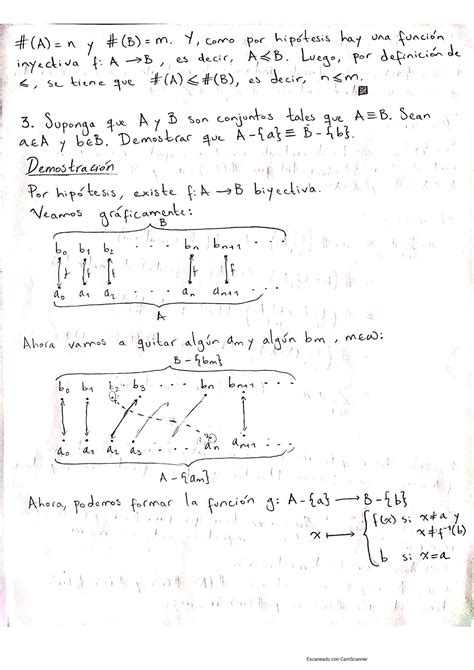 #(A) = n y #(B) = m. Y, como por hipótesis hay una función
inyectiva f: A → B, es decir, A ≤ B. Luego, por definición de
≤, se tiene que #(A) ≤ #(B), es decir, n ≤ m.
3. Suponga que A y B son conjuntos tales que A ≡ B. Sean
a∈A y b∈B. Demostrar que A-{a} ≡ B-{b}.
Demostración
Por hipótesis, existe f: A → B biyectiva.
Veamos gráficamente:
B
b0 b1 b2 ... bn bn+1 ...
f f f f
a0 a1 a2 ... an an+1 ...
A
Ahora vamos a quitar algún am y algún bm, m∈ω:
B-{bm}
b0 b1 b2 b3 ... bn bn+1 ...
a0 a1 a2 a3 ... an an+1 ...
A-{am}
Ahora, podemos formar la función g: A-{a} → B-{b}
x ↦ { f(x) si x≠a y
x≠f⁻¹(b)
b si x=a
Escaneado con CamScanner